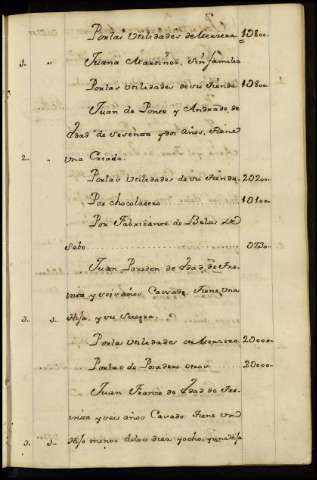 Por las Utilidades de Mercero 10800..
3. " Juana Martinez, sin familia
Por las Utilidades de su tienda 10800.
Juan de Ponce y Andrade de
Edad de Sesenta y dos años, tiene
2. " una Criada.
Por las Utilidades de su tienda. 20200.
Por chocolatero 10100..
Por Fabricante de Velas de
Sebo 0750..
Juan de Edad de tre-
inta y seis años Casado, tiene una
3. 3. Hija, y su Suegra.
Por las Utilidades de Mercero 20000..
Por las de Posadero otros 20000
Juan Franco de Edad de tre-
inta y seis años Casado tiene un
3. 3. Hijo menor de los diez y ocho, y una Hija